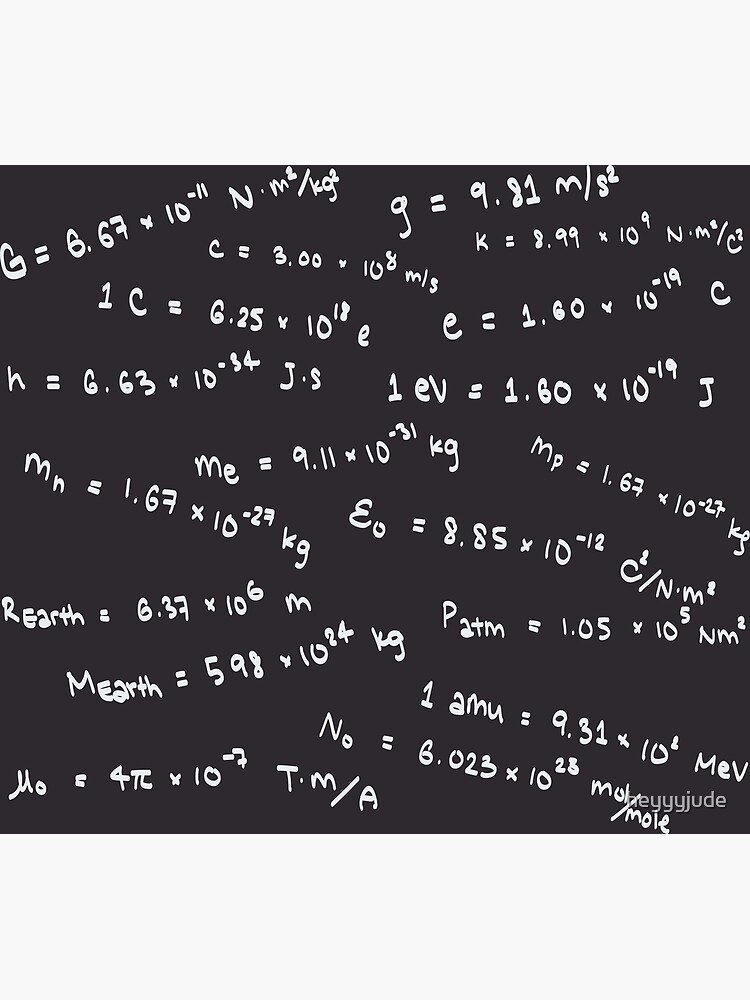 G = 6.67 × 10⁻¹¹ N·m²/kg²
g = 9.81 m/s²
c = 3.00 × 10⁸ m/s
K = 8.99 × 10⁹ N·m²/C²
1 C = 6.25 × 10¹⁸ e
e = 1.60 × 10⁻¹⁹ C
h = 6.63 × 10⁻³⁴ J·s
1 eV = 1.60 × 10⁻¹⁹ J
mₙ = 1.67 × 10⁻²⁷ kg
mₑ = 9.11 × 10⁻³¹ kg
mₚ = 1.67 × 10⁻²⁷ kg
Ɛ₀ = 8.85 × 10⁻¹² C²/N·m²
REarth = 6.37 × 10⁶ m
Patm = 1.05 × 10⁵ Nm²
MEarth = 598 × 10²⁴ kg
1 amu = 9.31 × 10² MeV
N₀ = 6.023 × 10²³ mol/mole
μ₀ = 4π × 10⁻⁷ T·m/A
heyyyjude